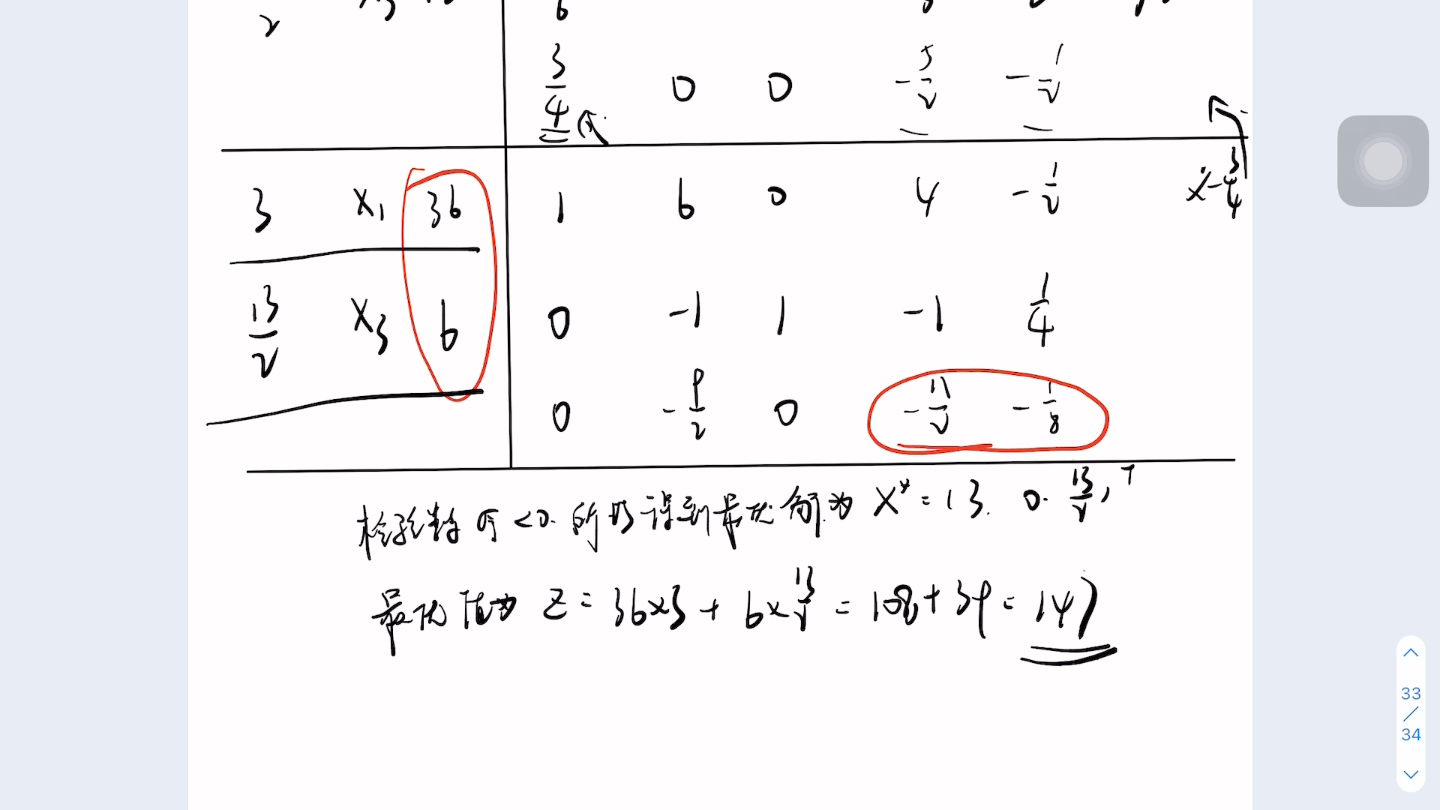 3/4 0 0 -5/2 -1/2
3 x₁ 36 1 6 0 4 -1/2 x-3/4
13/2 x₃ 6 0 -1 1 -1 1/4
0 -9/2 0 -11/2 -1/8
检验数 σ<0. 所以得到最优解为 X* = (3. 0. 13/2)ᵀ
最优值为 Z = 36×3 + 6×13/2 = 108+39 = 147
33
/
34